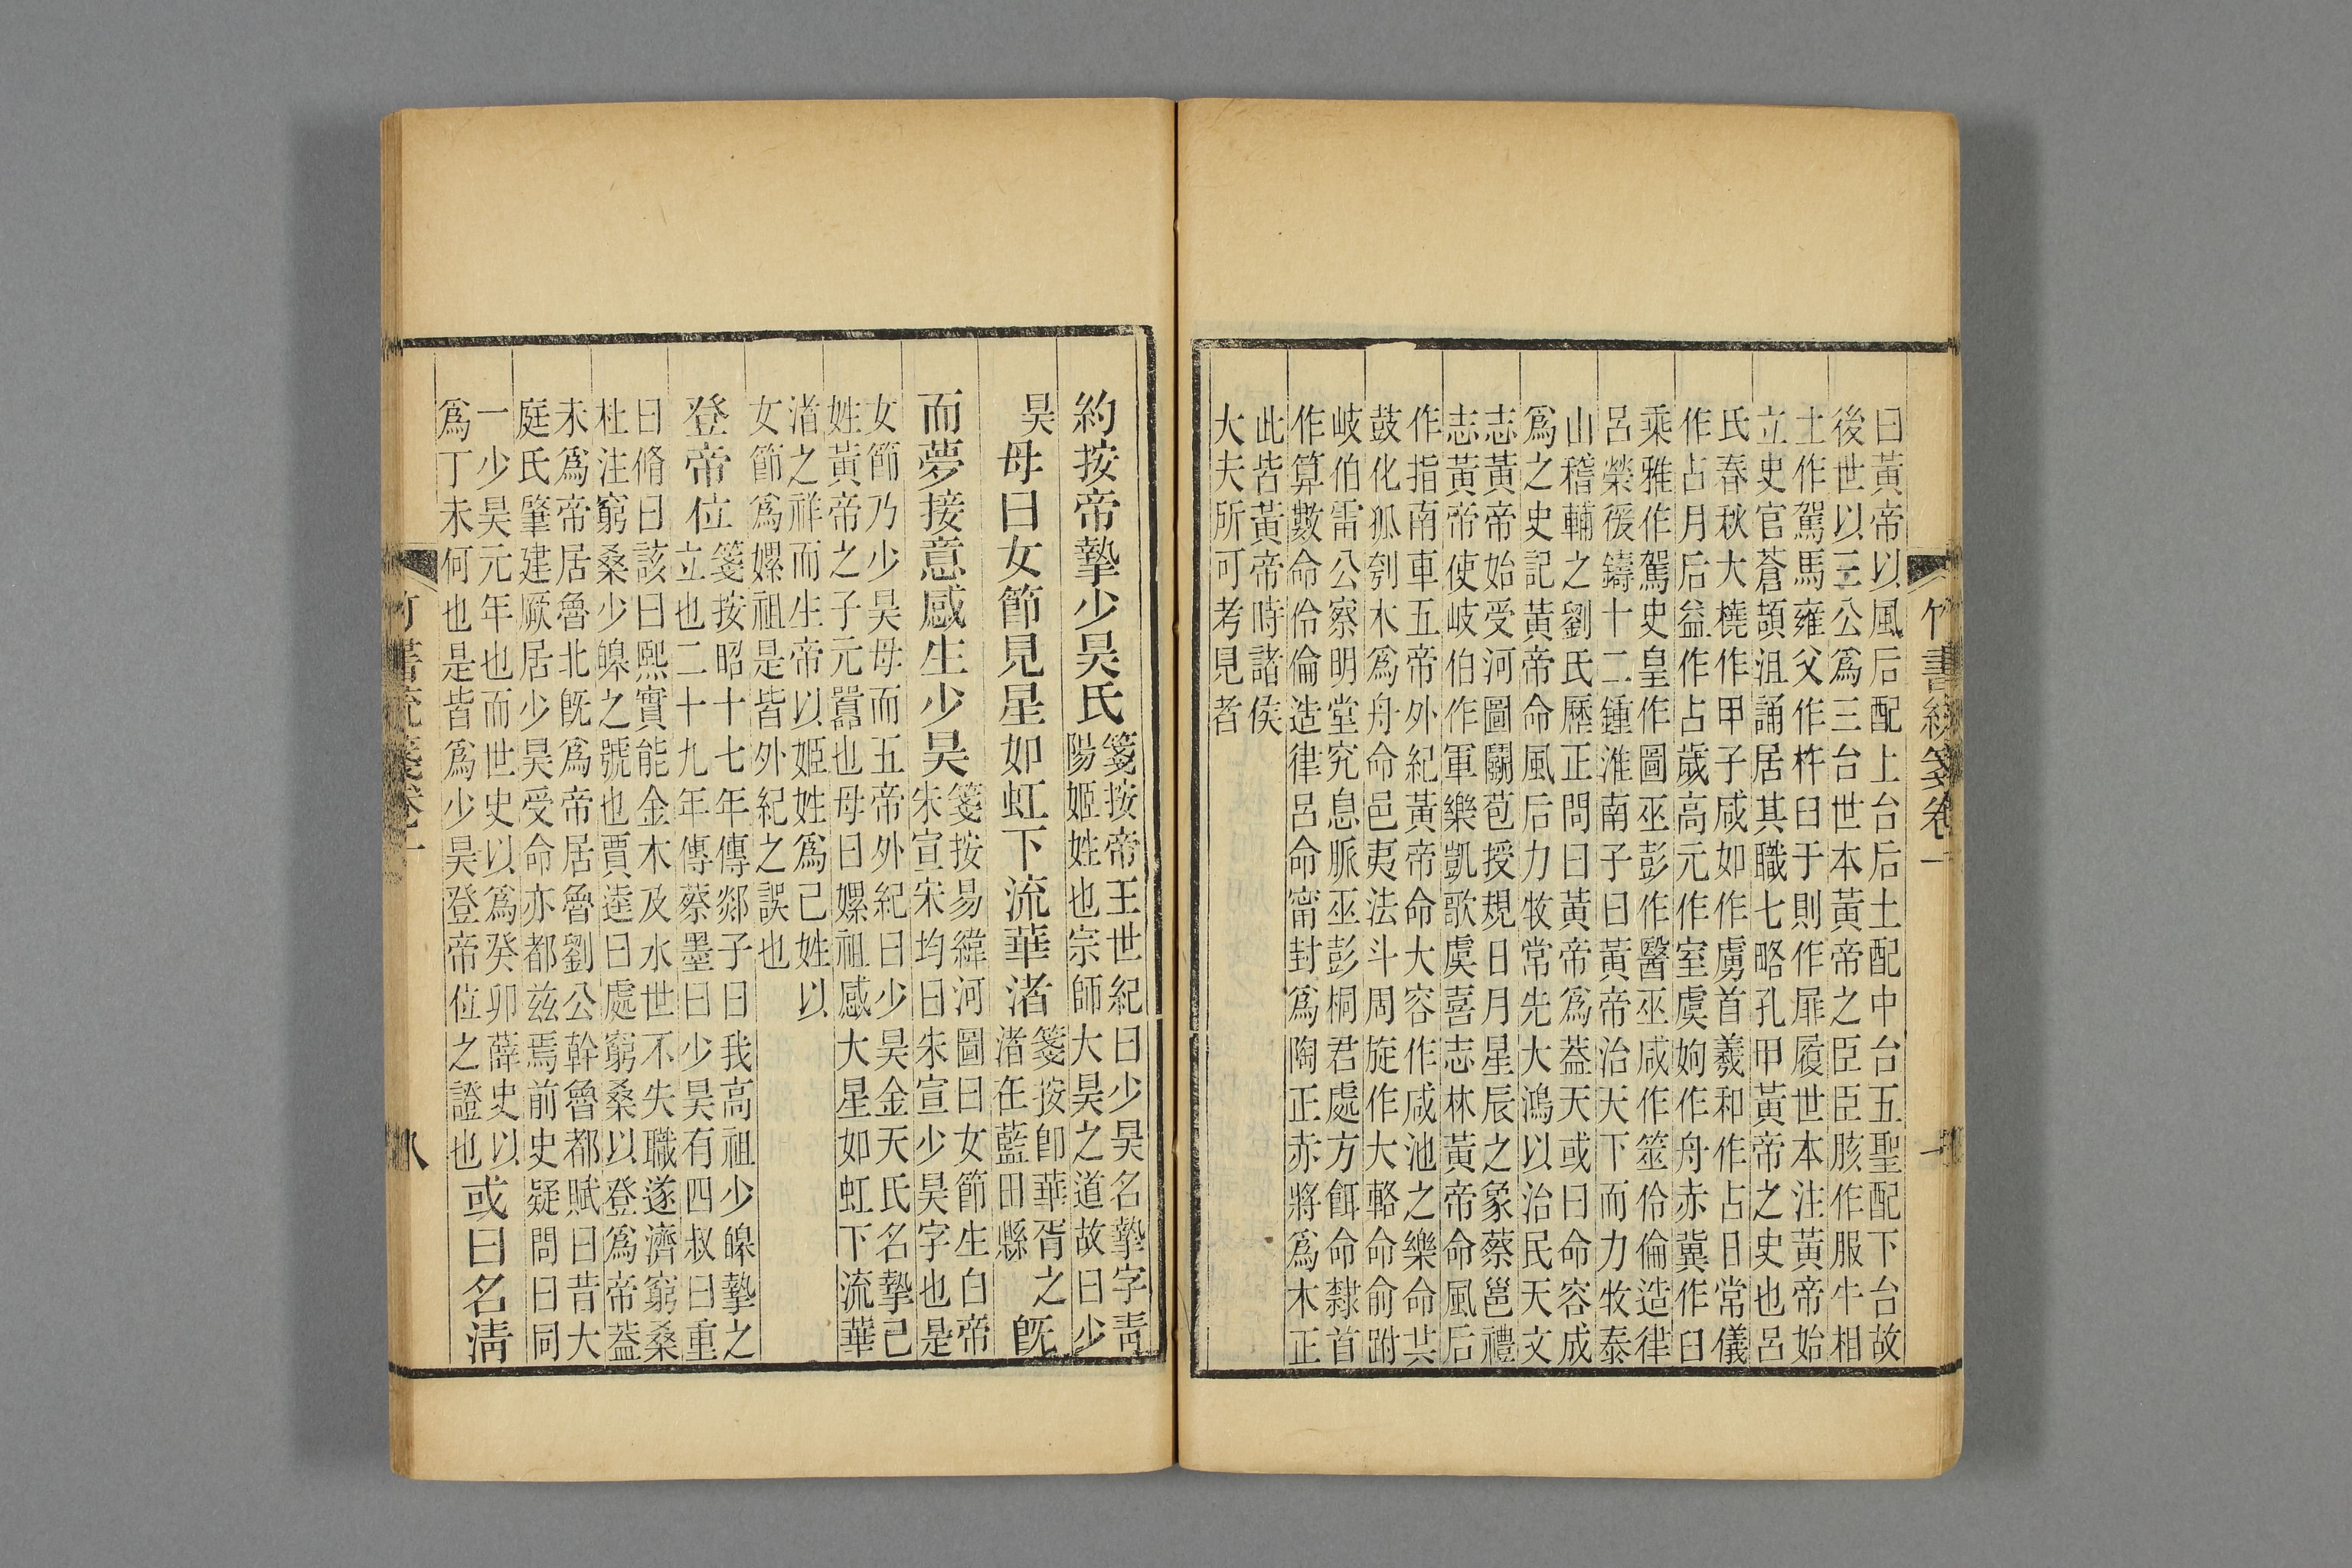 竹書統箋卷一
曰黃帝以風后配上台后土配中台五聖配下台故
後世以三公爲三台世本黃帝之臣臣胲作服牛相
土作駕馬雍父作杵臼于則作扉履世本注黃帝始
立史官蒼頡沮誦居其職七略孔甲黃帝之史也呂
氏春秋大橈作甲子咸如作虜首羲和作占日常儀
作占月后益作占歲高元作室虞姁作舟赤冀作臼
乘雅作駕史皇作圖巫彭作醫巫咸作筮伶倫造律
呂榮猨鑄十二鍾淮南子曰黃帝治天下而力牧泰
山稽輔之劉氏歷正問曰黃帝爲葢天或曰命容成
爲之史記黃帝命風后力牧常先大鴻以治民天文
志黃帝始受河圖鬭苞授規日月星辰之象蔡邕禮
志黃帝使岐伯作軍樂凱歌虞喜志林黃帝命風后
作指南車五帝外紀黃帝命大容作咸池之樂命共
鼓化狐刳木爲舟命邑夷法斗周旋作大輅命俞跗
岐伯雷公察明堂究息脈巫彭桐君處方餌命隸首
作算數命伶倫造律呂命甯封爲陶正赤將爲木正
此皆黃帝時諸侯
大夫所可考見者
約按帝摯少昊氏
箋按帝王世紀曰少昊名摯字靑
陽姬姓也宗師大昊之道故曰少
昊
母曰女節見星如虹下流華渚
箋按卽華胥之
渚在藍田縣
旣
而夢接意感生少昊
箋按易緯河圖曰女節生白帝
朱宣宋均曰朱宣少昊字也是
女節乃少昊母而五帝外紀曰少昊金天氏名摯己
姓黃帝之子元囂也母曰嫘祖感大星如虹下流華
渚之祥而生帝以姬姓爲己姓以
女節爲嫘祖是皆外紀之誤也
登帝位
箋按昭十七年傳郯子曰我高祖少皡摯之
立也二十九年傳蔡墨曰少昊有四叔曰重
曰脩曰該曰熙實能金木及水世不失職遂濟窮桑
杜注窮桑少皡之號也賈逵曰處窮桑以登爲帝葢
未爲帝居魯北旣爲帝居魯劉公幹魯都賦曰昔大
庭氏肇建厥居少昊受命亦都兹焉前史疑問曰同
一少昊元年也而世史以爲癸卯薛史以
爲丁未何也是皆爲少昊登帝位之證也
或曰名淸
八